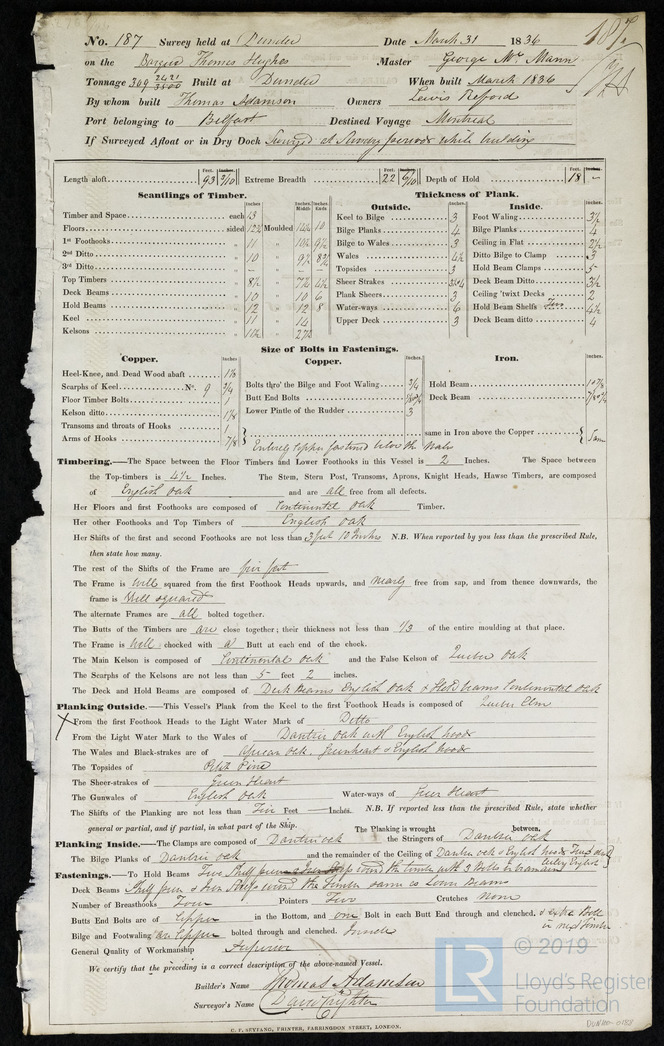 No. 187 Survey held at Dundee Date March 31 1836
on the Barque Thomas Hughes Master George Mc Mann
Tonnage 369 2421/3500 Built at Dundee When built March 1836
By whom built Thomas Adamson Owners Lewis Refford
Port belonging to Belfast Destined Voyage Montreal
If Surveyed Afloat or in Dry Dock Surveyed at Sundry periods while building
Feet. Inches. Feet. Inches. Feet. Inches.
Length aloft 93 Extreme Breadth 22 Depth of Hold 18 –
Scantlings of Timber. Thickness of Plank.
Outside. Inside.
Timber and Space each Keel to Bilge 3 Foot Waling 3½
Floors sided 12½ Moulded 10 Bilge Planks 4 Bilge Planks 4
1st Foothooks 11 " 10½ 9½ Bilge to Wales 3 Ceiling in Flat 2½
2nd Ditto 10 " 9½ 8¾ Wales 4½ Ditto Bilge to Clamp 3
3rd Ditto – " – – Topsides 3 Hold Beam Clamps 5
Top Timbers 8½ " 7½ Sheer Strakes Deck Beam Ditto 3½
Deck Beams 10 " 10 6 Plank Sheers 3 Ceiling 'twixt Decks 2
Hold Beams 12 " 12 8 Water-ways 6 Hold Beam Shelfs 4½
Keel 11 " 14 Upper Deck 3 Deck Beam ditto 4
Kelsons 11½ " 27½
Size of Bolts in Fastenings.
Copper. Copper. Iron.
Heel-Knee, and Dead Wood abaft 1⅛
Scarphs of Keel No. 9 ¾ Bolts thro' the Bilge and Foot Waling ¾ Hold Beam
Floor Timber Bolts 1 Butt End Bolts Deck Beam
Kelson ditto 1⅛ Lower Pintle of the Rudder 3
Transoms and throats of Hooks 1
Arms of Hooks 7/8 same in Iron above the Copper Same
Entirely Copper fastened below the Wales
Timbering.—The Space between the Floor Timbers and Lower Foothooks in this Vessel is 2 Inches. The Space between
the Top-timbers is 4½ Inches. The Stem, Stern Post, Transoms, Aprons, Knight Heads, Hawse Timbers, are composed
of English Oak and are all free from all defects.
Her Floors and first Foothooks are composed of Continental Oak Timber.
Her other Foothooks and Top Timbers of English Oak
Her Shifts of the first and second Foothooks are not less than 3 feet 10 Inches N.B. When reported by you less than the prescribed Rule,
then state how many.
The rest of the Shifts of the Frame are five feet
The Frame is Well squared from the first Foothook Heads upwards, and nearly free from sap, and from thence downwards, the
frame is Well squared
The alternate Frames are all bolted together.
The Butts of the Timbers are are close together; their thickness not less than 1/3 of the entire moulding at that place.
The Frame is Well chocked with a Butt at each end of the chock.
The Main Kelson is composed of Continental Oak and the False Kelson of Quebec Oak
The Scarphs of the Kelsons are not less than 5 feet 2 inches.
The Deck and Hold Beams are composed of Deck Beams English Oak & Hold beams Continental Oak
Planking Outside.—This Vessel's Plank from the Keel to the first Foothook Heads is composed of Quebec Elm
From the first Foothook Heads to the Light Water Mark of Ditto
From the Light Water Mark to the Wales of Dantzic Oak with English hoods
The Wales and Black-strakes are of African Oak, Greenheart & English hoods
The Topsides of Pitch Pine
The Sheer-strakes of Green Heart
The Gunwales of English Oak Water-ways of Green Heart
The Shifts of the Planking are not less than Five Feet — Inches. N.B. If reported less than the prescribed Rule, state whether
general or partial, and if partial, in what part of the Ship. The Planking is wrought between.
Planking Inside.—The Clamps are composed of Dantzic oak the Stringers of Dantzic Oak
The Bilge Planks of Dantzic oak and the remainder of the Ceiling of Dantzic Oak & English hoods
Fastenings.—To Hold Beams
Deck Beams
Number of Breasthooks Four Pointers Two Crutches None
Butts End Bolts are of Copper in the Bottom, and one Bolt in each Butt End through and clenched. & extra Bolt in next Timber
Bilge and Footwaling are Copper bolted through and clenched.
General Quality of Workmanship Superior
We certify that the preceding is a correct description of the above-named Vessel.
Builder's Name Thomas Adamson
Surveyor's Name David Crighton
C. F. SEYFANG, PRINTER, FARRINGDON STREET, LONDON.
LR © 2019
Lloyd's Register
Foundation